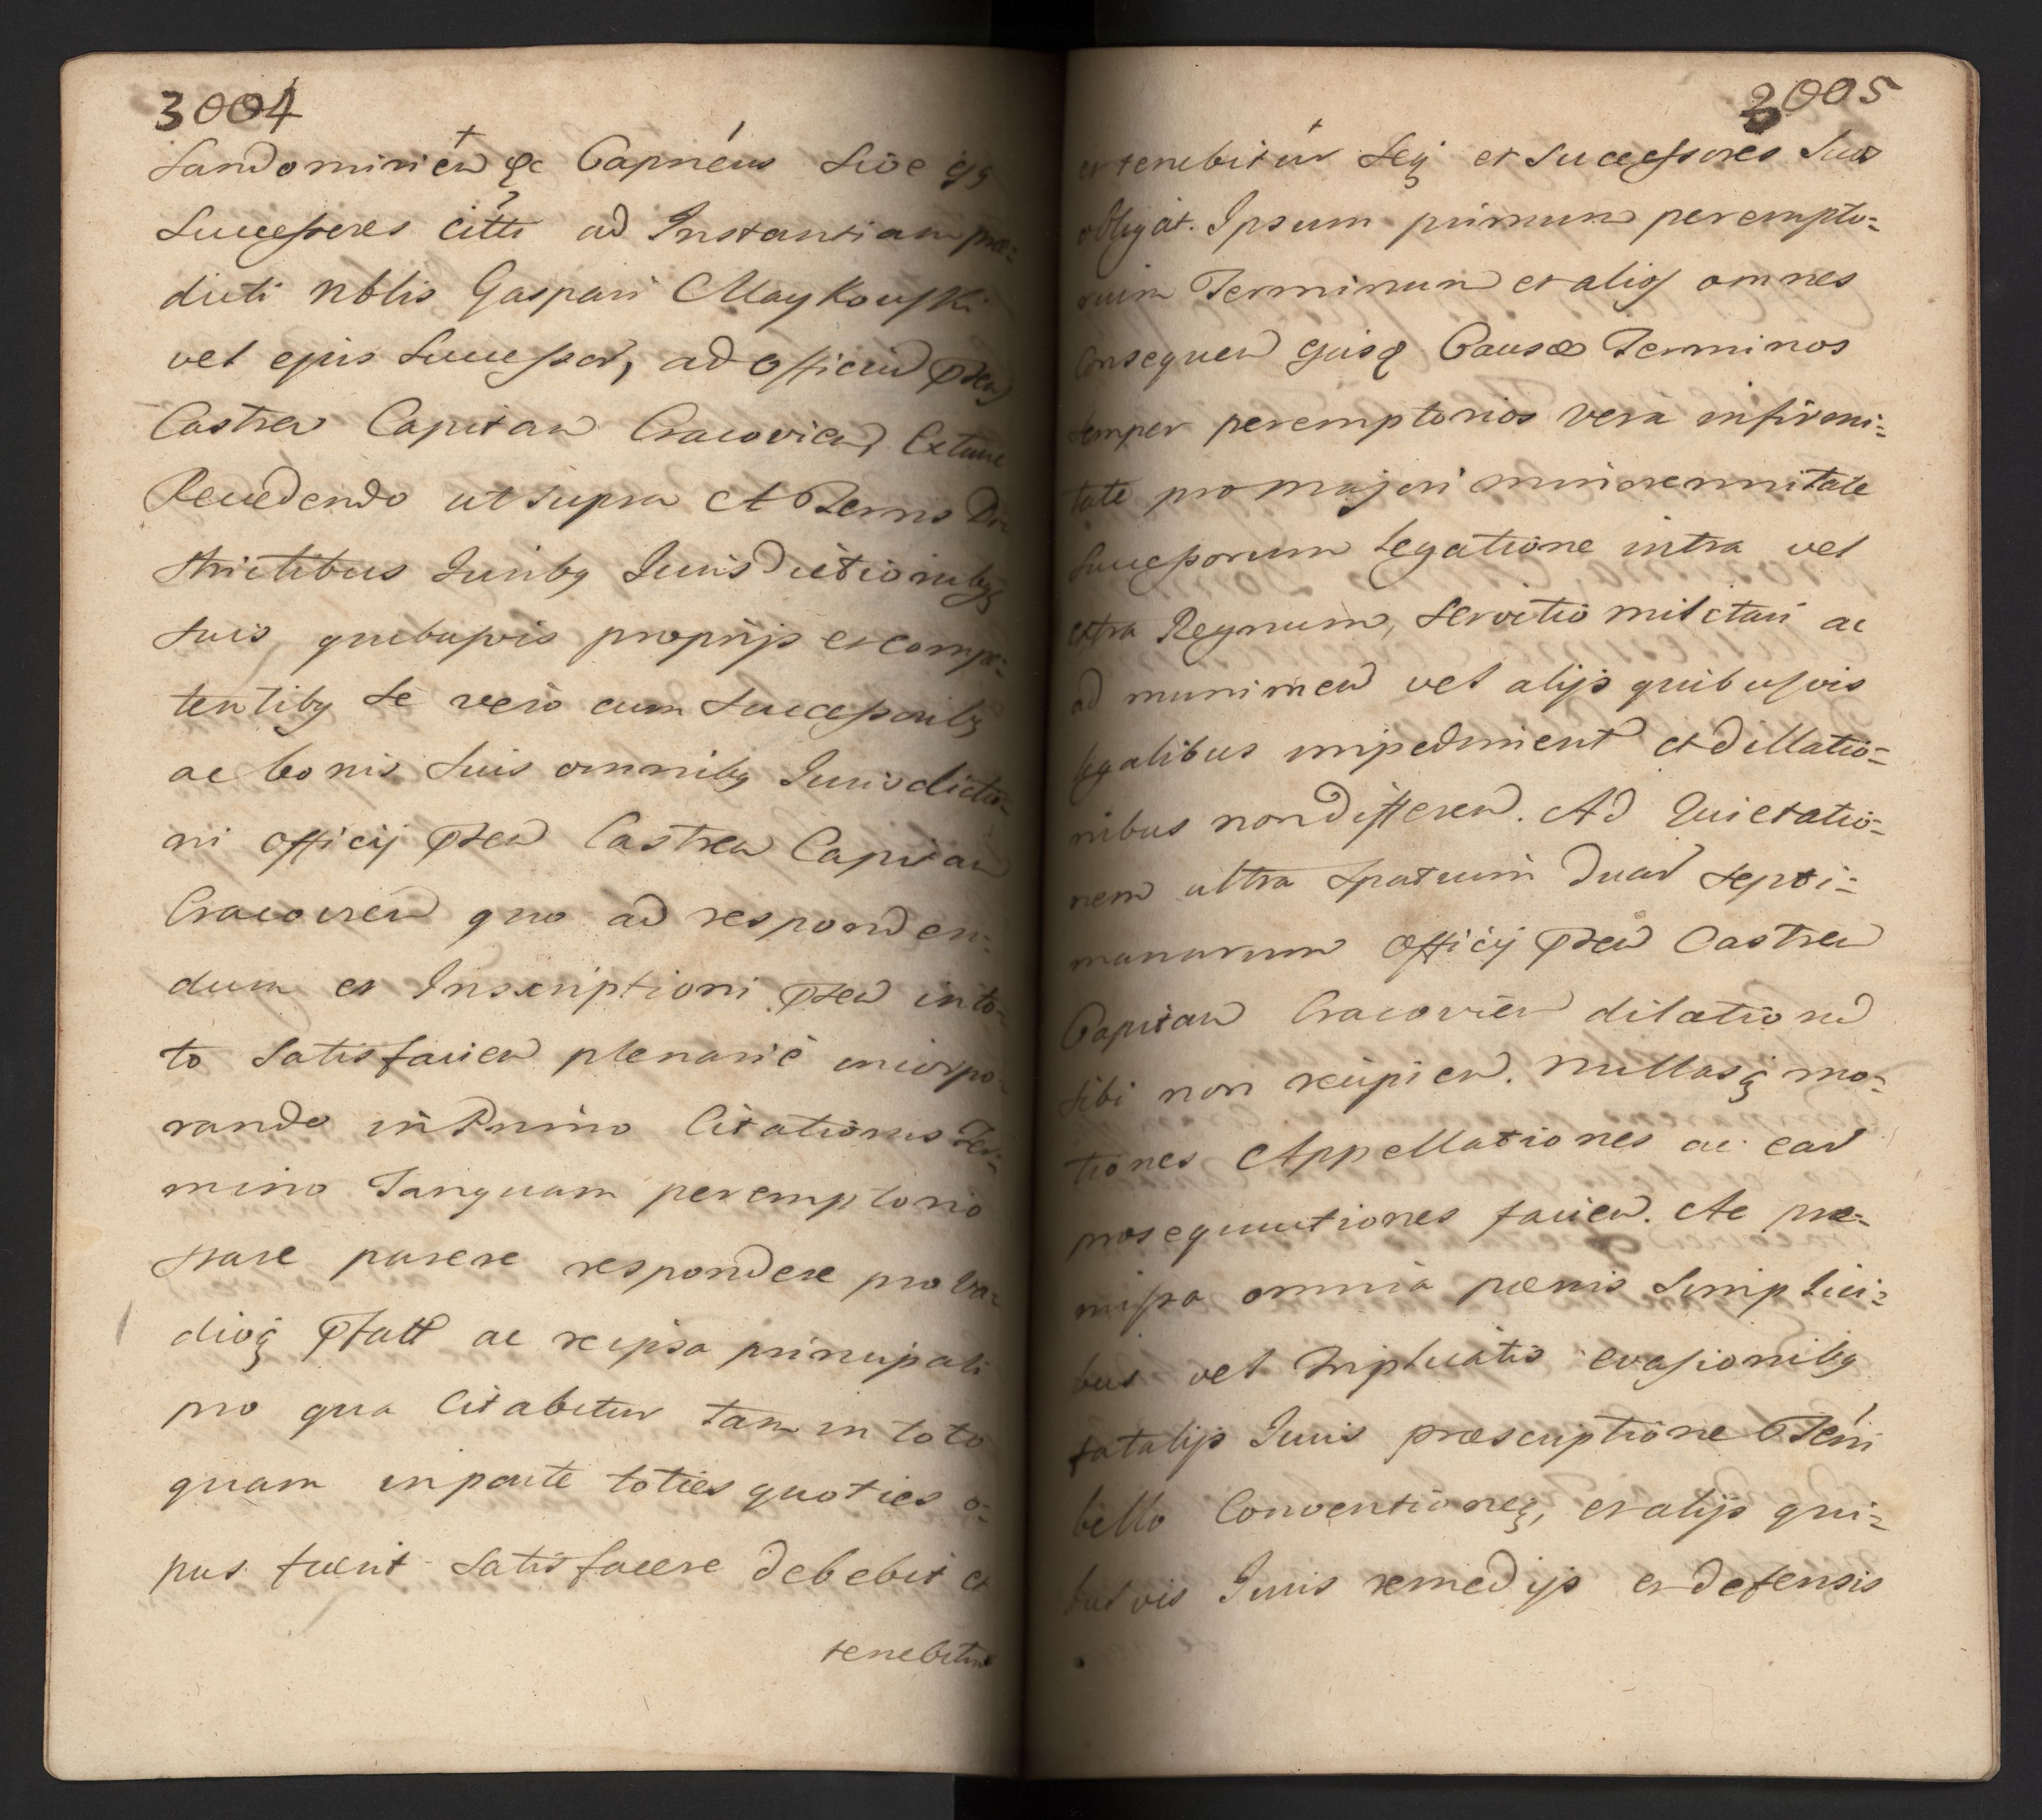 3004
Sandomirien &c Capneus Sive ejq
Successeres citti ad Instantiam præ=
dicti Nblis Gaspari Maykowski
vel ejus Successor, ad officiū pten
Castren Capitan Cracovien, Extunc
Recedendo ut supra A Terris Di=
strictibus Juribq Jurisdictionibq
suis quibusvis proprijs et compe=
tentibq Se vero cum Successoribq
ac bonis suis omnibq Jurisdictio=
ni officij pten Castren Capitan
Cracovien quo ad responden=
dum et Inscriptioni pten in to=
to Satisfacien plenariè incorpo=
rando in Primo Citationis Ter=
mino Tanquam peremptorio
stare parere respondere pro va=
dioq ptatt ac re ipsa principali
pro qua Citabitur tam in toto
quam in parte toties quoties o=
pus fuerit Satisfacere debebit et
tenebitur
3005
et tenebitur Seq et Successores Suos
obligat. Ipsum primum perempto=
rium Terminum et alios omnes
Consequen ejusq Causæ Terminos
semper peremptorios verà infirmi=
tate pro majori minorennitate
Successorum Legatione intra vel
extra Regnum, Servitio militari ac
ad munimen vel alijs quibusvis
legalibus impediment et dillatio=
nibus non differen. Ad Quietatio=
nem ultra Spatium duar septi=
manarum officij pten Castren
Capitan Cracovien dilationū
sibi non recipien. Nullasq mo=
tiones Appellationes ac ear
prosequutiones facien. Ac præ=
missa omnia pœnis Simplici=
bus vel triplicatis evasionibq
fatalijs Juris præscriptione pteni
bello Conventioneq, et alijs qui=
busvis Juris remedijs et defensis